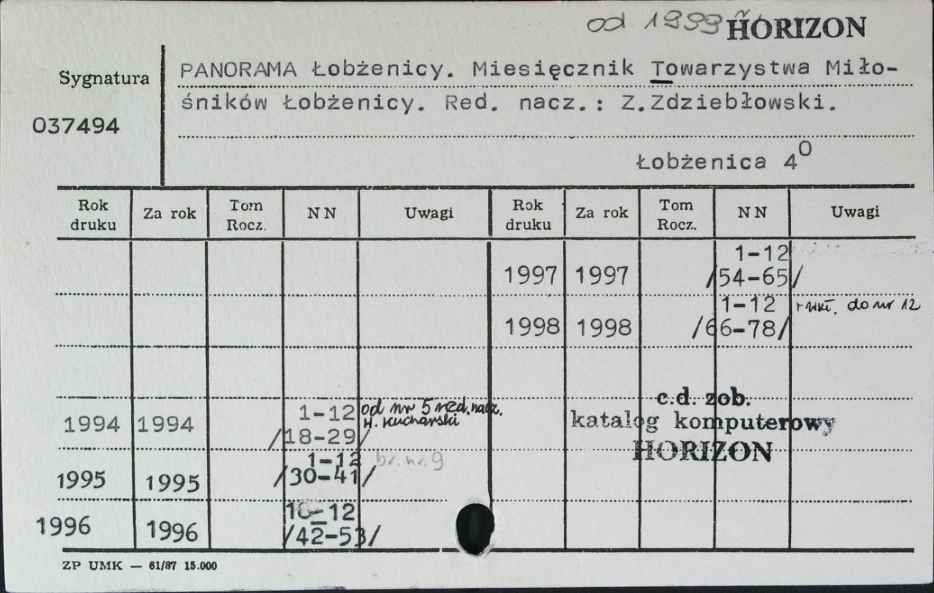 od 1999 HORIZON
Sygnatura
037494
PANORAMA Łobżenicy. Miesięcznik Towarzystwa Miło-
śników Łobżenicy. Red. nacz.: Z.Zdziebłowski.
Łobżenica 4⁰
Rok druku Za rok Tom Rocz. NN Uwagi Rok druku Za rok Tom Rocz. NN Uwagi
1997 1997 1-12 /54-65/
1998 1998 1-12 /66-78/ do nr 12
1994 1994 1-12 /18-29/ od nr 5 red. nacz. H. Kucharski
1995 1995 1-12 /30-41/ br. nr. 9
1996 1996 -12 /42-53/
c.d. zob.
katalog komputerowy
HORIZON
ZP UMK — 61/87 15.000